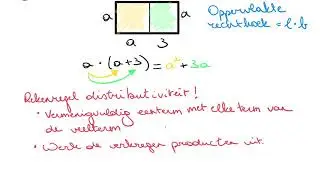 a a
a 3
Oppervlakte
rechthoek = l · b
a · (a+3) = a² + 3a
Rekenregel distributiviteit!
• Vermenigvuldig eenterm met elke term van
de veelterm
• Werk de verkregen producten uit.